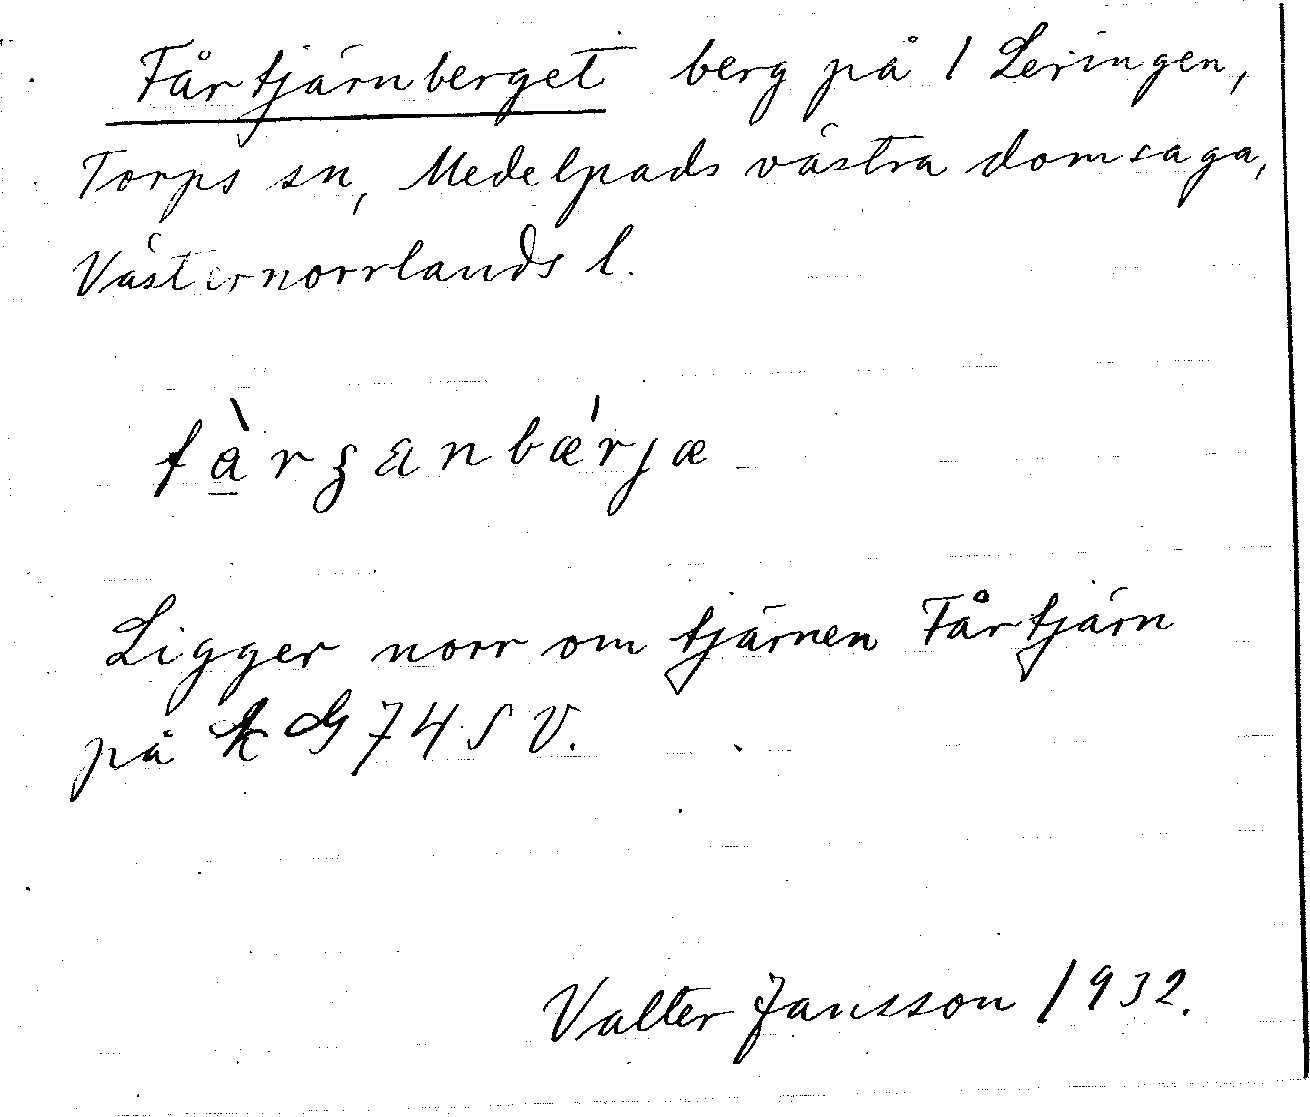 Fårtjärnberget berg på 1 Leringen,
Torps sn, Medelpads västra domsaga,
Västernorrlands l.
Ligger norr om tjärnen Fårtjärn
på G 74 SV.
Valter Jansson 1932.